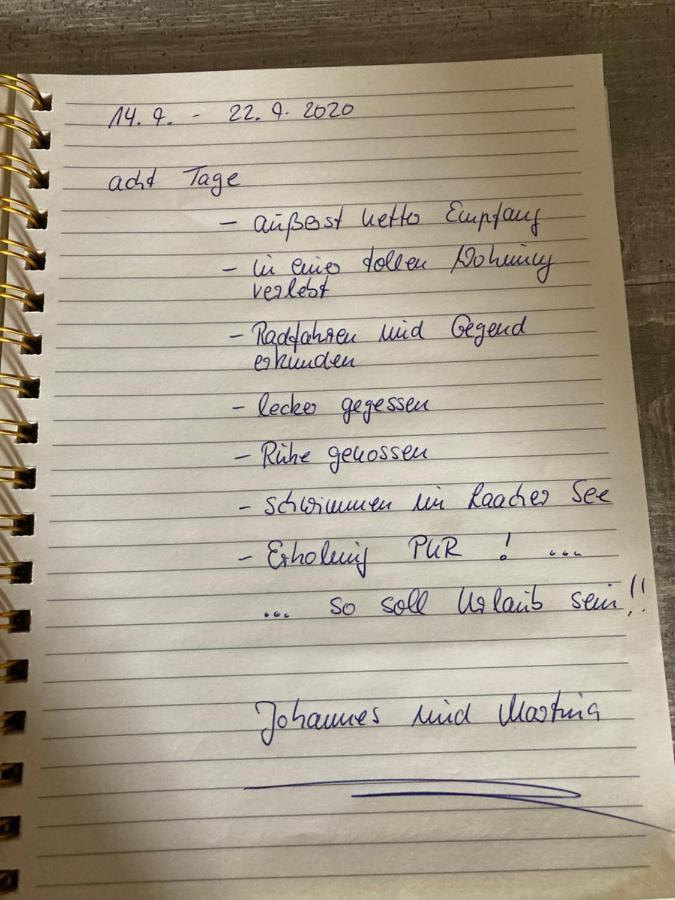 14.9. - 22.9.2020
acht Tage
- äußerst netter Empfang
- in einer tollen Wohnung
verlebt
- Radfahren und Gegend
erkunden
- lecker gegessen
- Ruhe genossen
- schwimmen im Laacher See
- Erholung PUR ! ...
... so soll Urlaub sein!!
Johannes und Martina